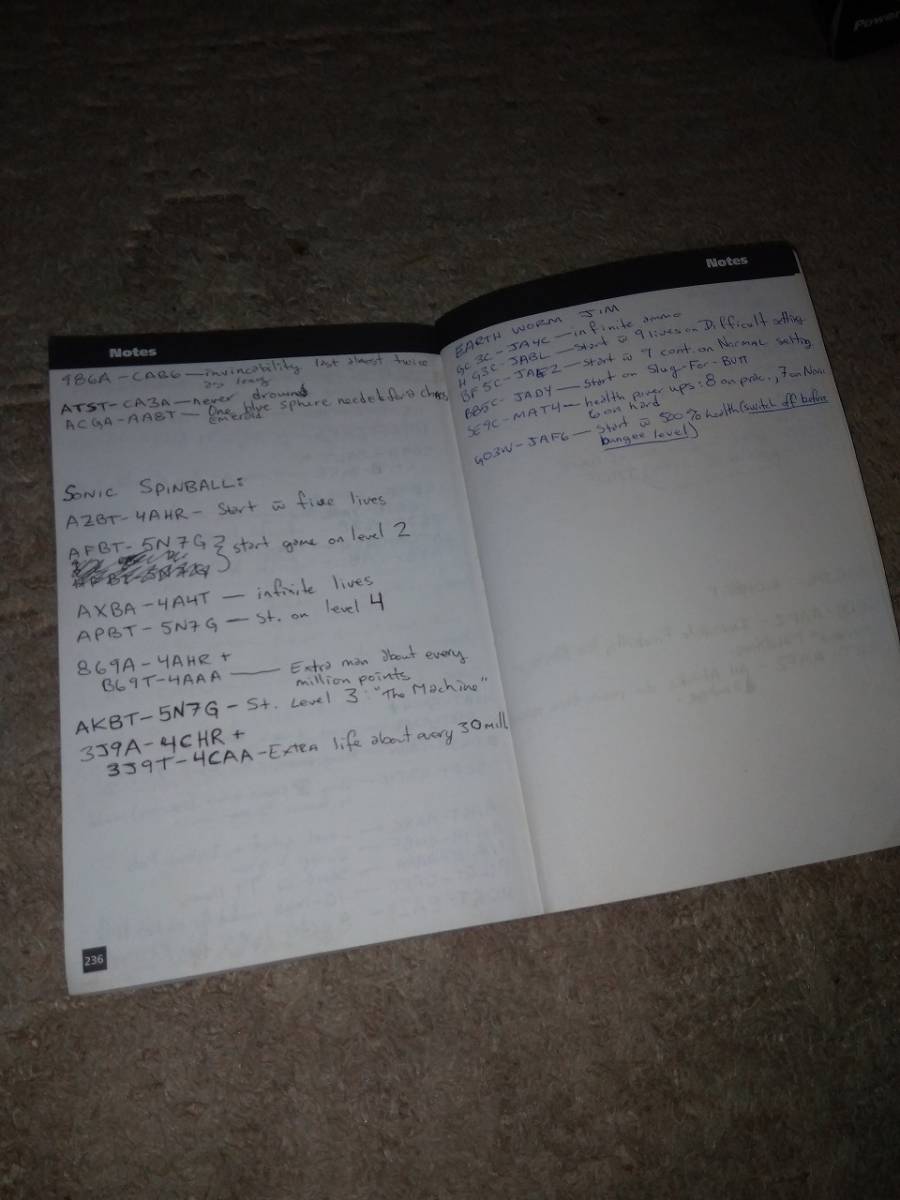 Notes
986A-CAB6 — invincability last almost twice
as long
ATST-CA3A — Never dround
ACGA-AABT — One blue sphere needed for a chaos
Emerald
SONIC SPINBALL:
AZBT-4AHR - Start w̄ five lives
AFBT-5N7G } start game on level 2
AXBA-4A4T — infinite lives
APBT-5N7G — St. on level 4
869A-4AHR +
B69T-4AAA — Extra man about every
million points
AKBT-5N7G - St. Level 3: "The Machine"
3J9A-4CHR +
3J9T-4CAA - EXTRA life about every 30 mill
236
Notes
EARTH WORM JIM
GC3C-JA4C — infinite ammo
HG3C-JABL — Start w̄ 9 lives on Difficult setting
BF5C-JAEZ — Start w̄ 9 cont. on Normal setting
BB5C-JADY — Start on Slug-For-Butt
SE9C-MAT4 — health power ups: 8 on prac., 7 on Norm
6 on hard
-JAF6 — Start w̄ 500% health (switch off before
bungee level)
Power